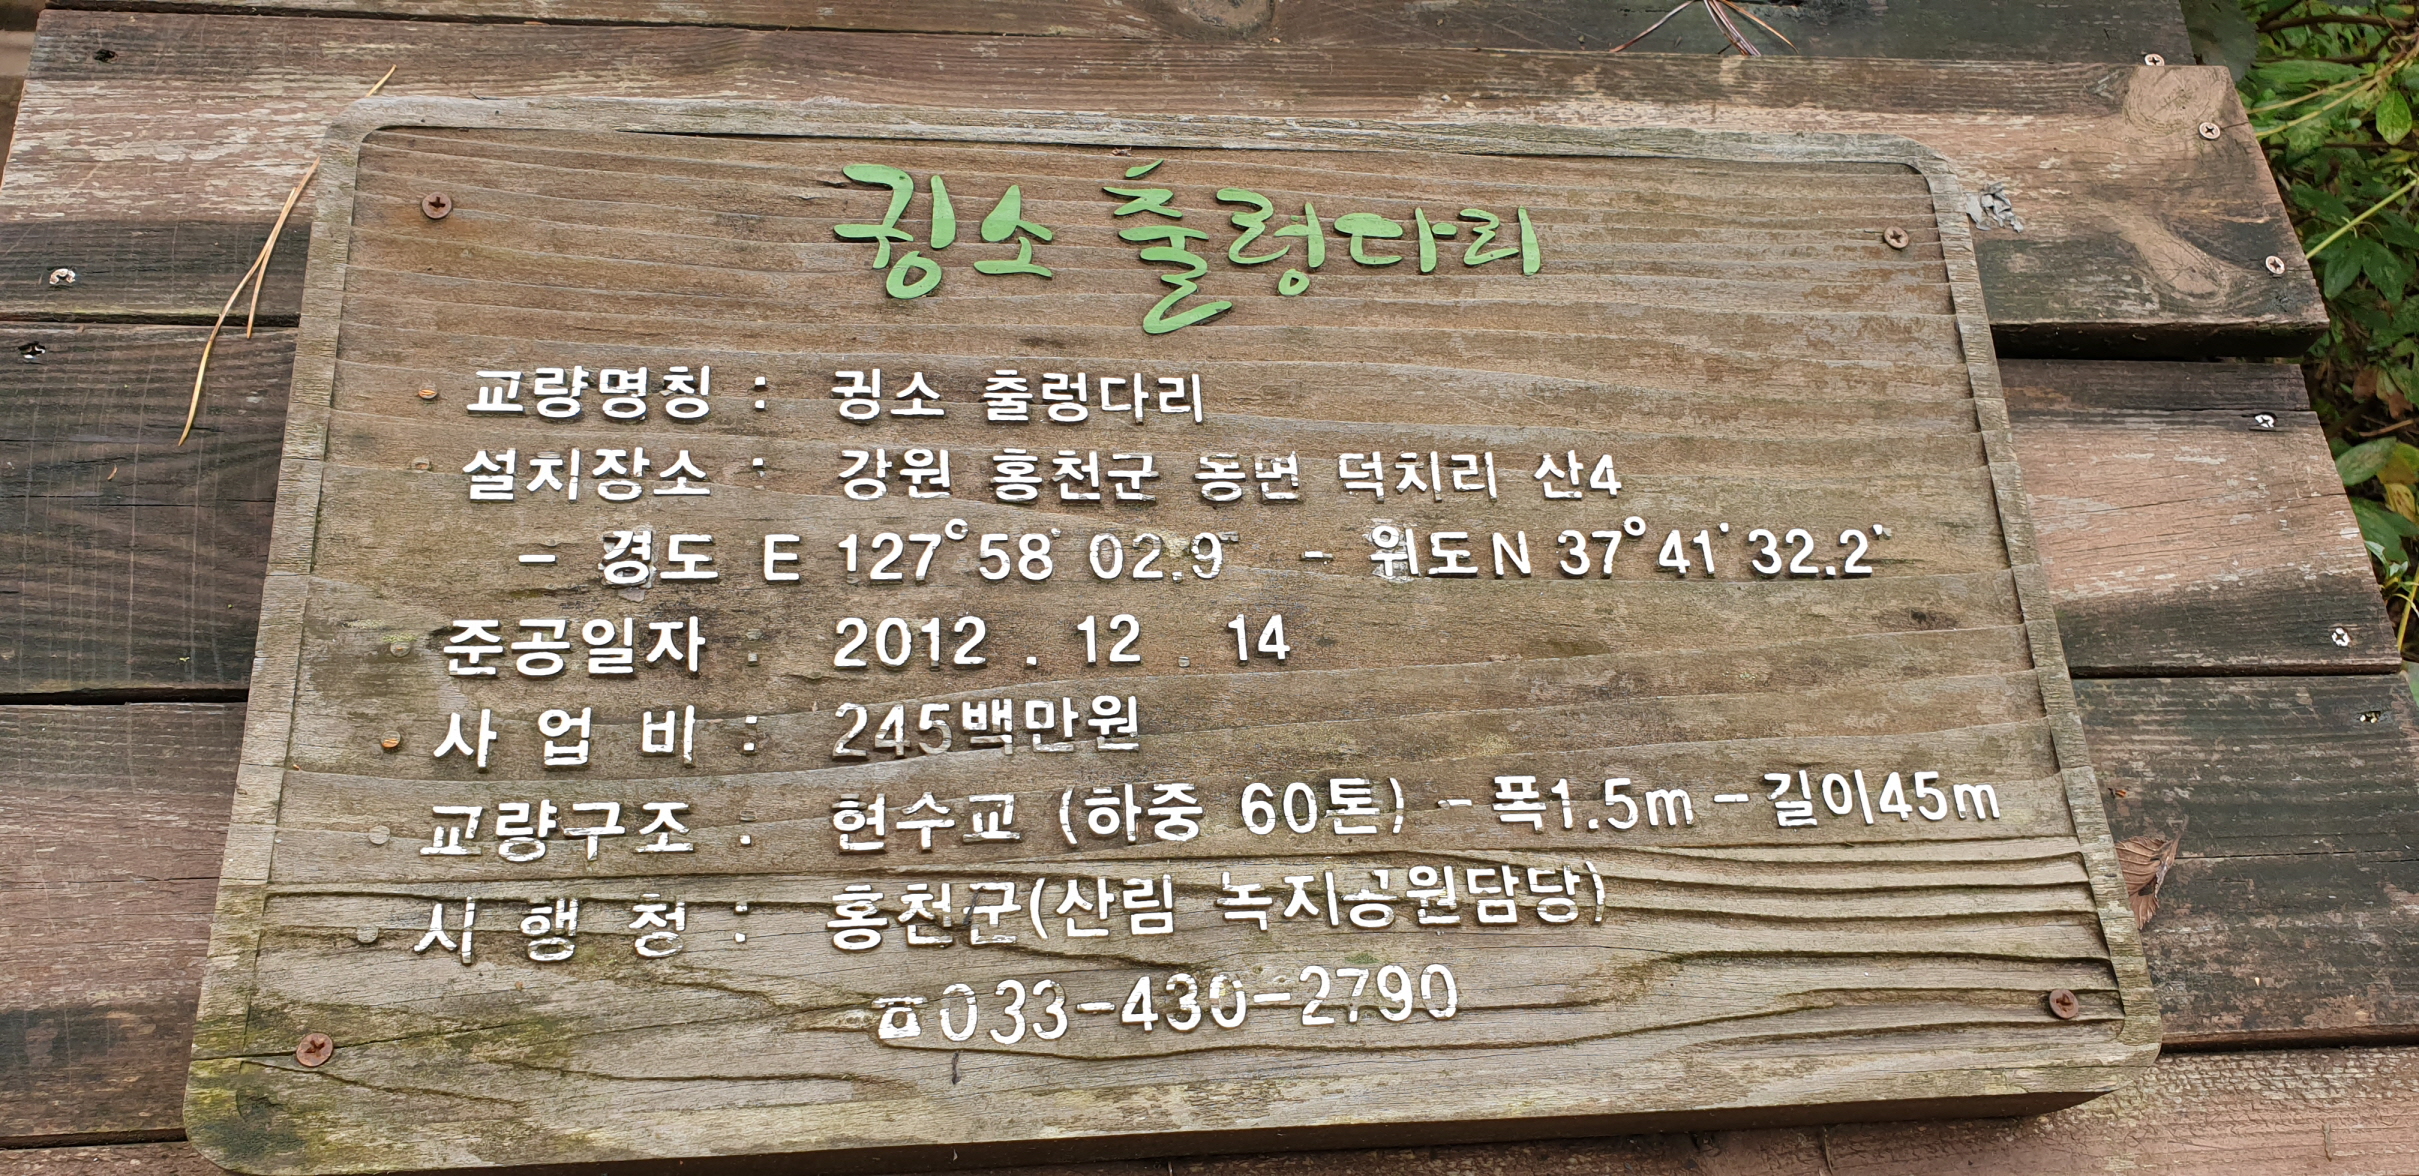 귕소 출렁다리
교량명칭 : 귕소 출렁다리
설치장소 : 강원 홍천군 동면 덕치리 산4
- 경도 E 127°58' 02.9" - 위도 N 37°41' 32.2"
준공일자 : 2012 . 12 . 14
사 업 비 : 245백만원
교량구조 : 현수교 (하중 60톤) - 폭1.5m - 길이45m
시 행 청 : 홍천군(산림 녹지공원담당)
☎033-430-2790